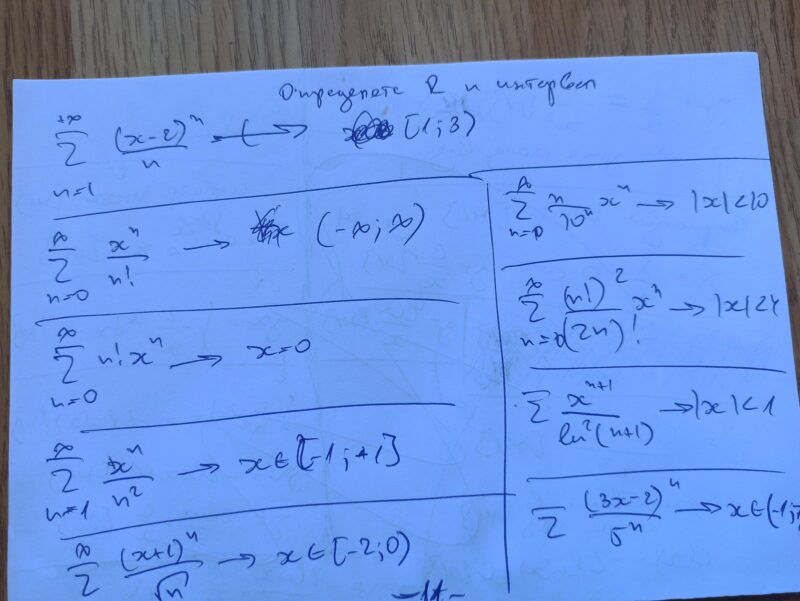 Определете R и интервал
+∞ ∑ n=1 (x-2)ⁿ / n → [1;3)
∞ ∑ n=0 xⁿ / n! → (-∞;∞)
∞ ∑ n=0 n! xⁿ → x=0
∞ ∑ n=1 xⁿ / n² → x∈[-1;+1]
∞ ∑ (x+1)ⁿ / √n → x∈[-2;0)
∞ ∑ n=0 n / 10ⁿ xⁿ → |x|<10
∞ ∑ n=0 (n!)² / (2n)! xⁿ → |x|<4
∑ xⁿ⁺¹ / ln²(n+1) → |x|<1
∑ (3x-2)ⁿ / 5ⁿ → x∈(-1;
-11-